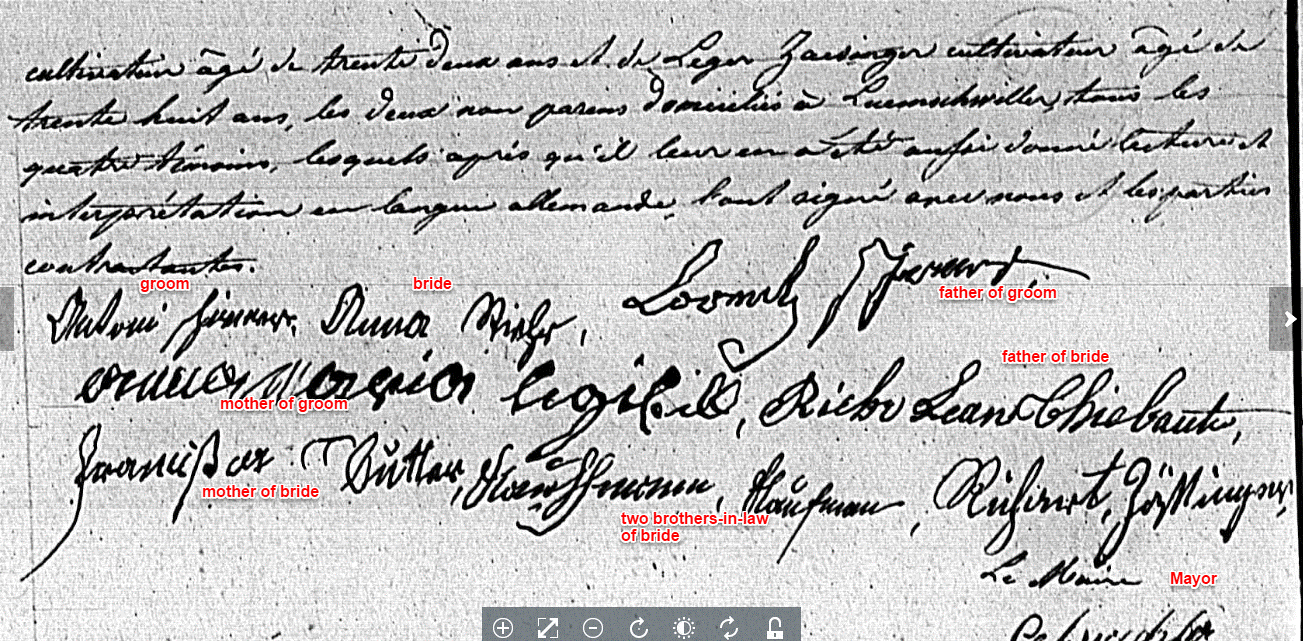 cultivateur âgé de trente deux ans et de Leger Zaesinger cultivateur âgé de
trente huit ans, les deux non parens domiciliés à Luemschwiller, tous les
quatre témoins, lesquels après qu'il leur en a été aussi donné lecture et
interprétation en langue allemande, l'ont signé avec nous et les parties
contractantes.
groom
bride
father of groom
Antoni Anna Rieħr,
father of bride
anna maria, Riehr Jean Thiebaut,
mother of groom
Sutter, Kauffmann, Kaufman,
mother of bride
two brothers-in-law
of bride
Le Maire
Mayor